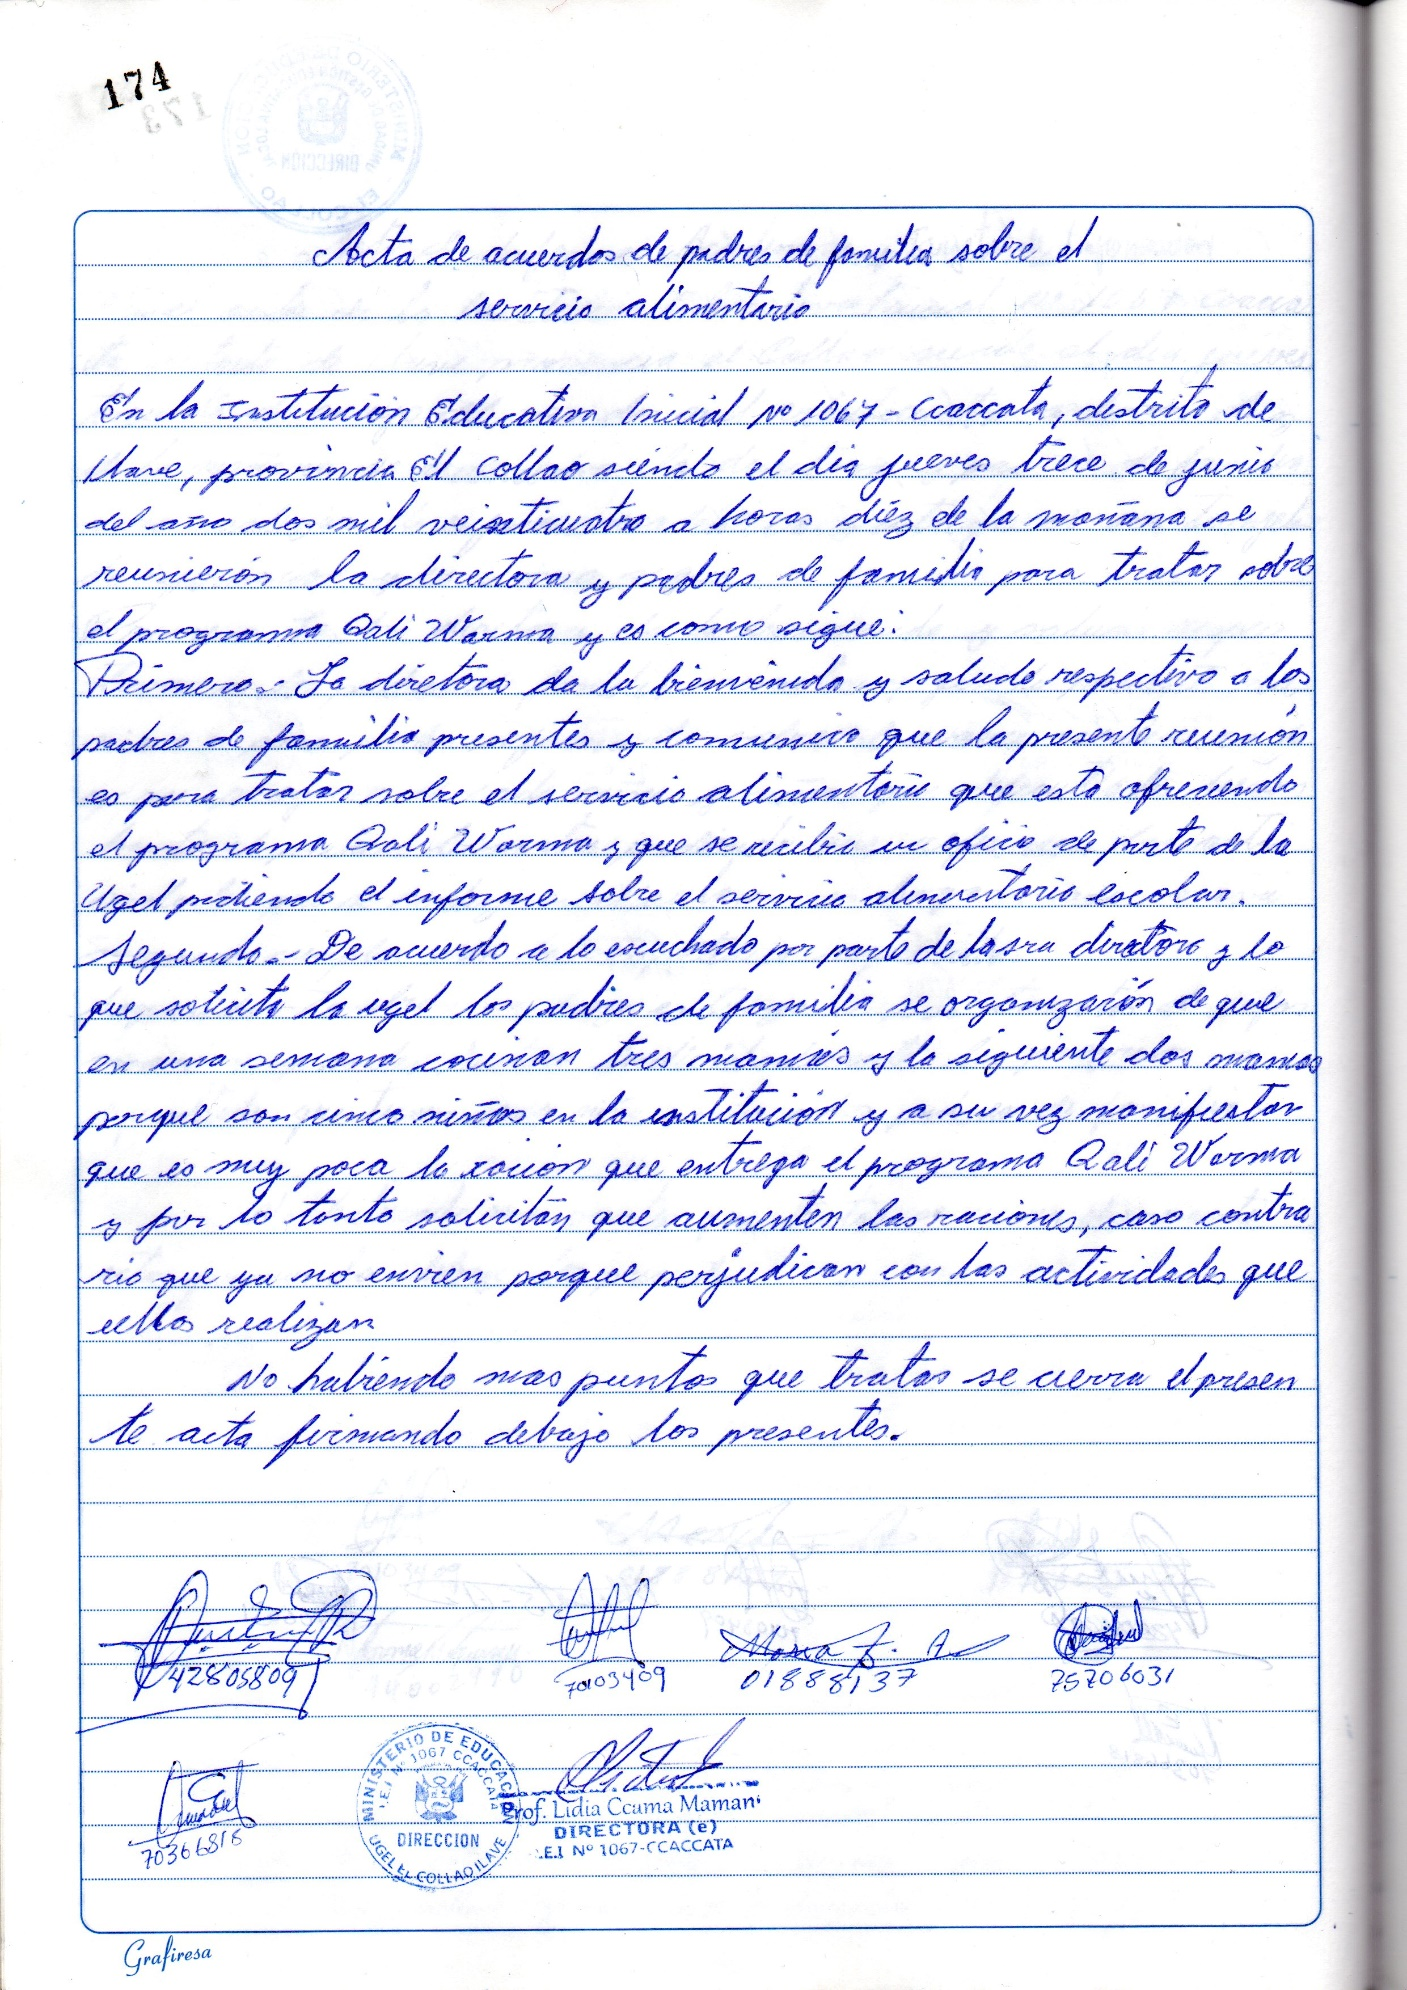 174
Acta de acuerdos de padres de familia sobre el
servicio alimentario
En la Institución Educativa Inicial Nº 1067 - Ccaccata, distrito de
Ilave, provincia El Collao siendo el dia jueves trece de junio
del año dos mil veinticuatro a horas diéz de la mañana se
reunierón la directora y padres de familia para tratar sobre
el programa Qali Warma y es como sigue:
Primero.- La diretora da la bienvenida y saludo respectivo a los
padres de familia presentes y comunico que la presente reunión
es para tratar sobre el servicio alimentario que esta ofreciendo
el programa Qali Warma y que se recibio un oficio de parte de la
Ugel pidiendo el informe sobre el servicio alimentario escolar.
Segundo.- De acuerdo a lo escuchado por parte de la sra directora y lo
que solicita la ugel los padres de familia se organizarón de que
en una semana cocinan tres mamás y la siguiente dos mamas
porque son cinco niños en la institución y a su vez manifiestan
que es muy poca la ración que entrega el programa Qali Warma
y por lo tanto solicitán que aumenten las raciones, caso contra
rio que ya no envien porque perjudican con las actividades que
ellos realizan
No habiendo mas puntos que tratar se cierra el presen
te acta firmando debajo los presentes.
42805809
70103409
01888137
75706031
70366816
MINISTERIO DE EDUCACIÓN
I.E.I Nº 1067 CCACCATA
DIRECCION
UGEL EL COLLAO ILAVE
Prof. Lidia Ccama Mamani
DIRECTORA (e)
I.E.I Nº 1067-CCACCATA
Grafiresa